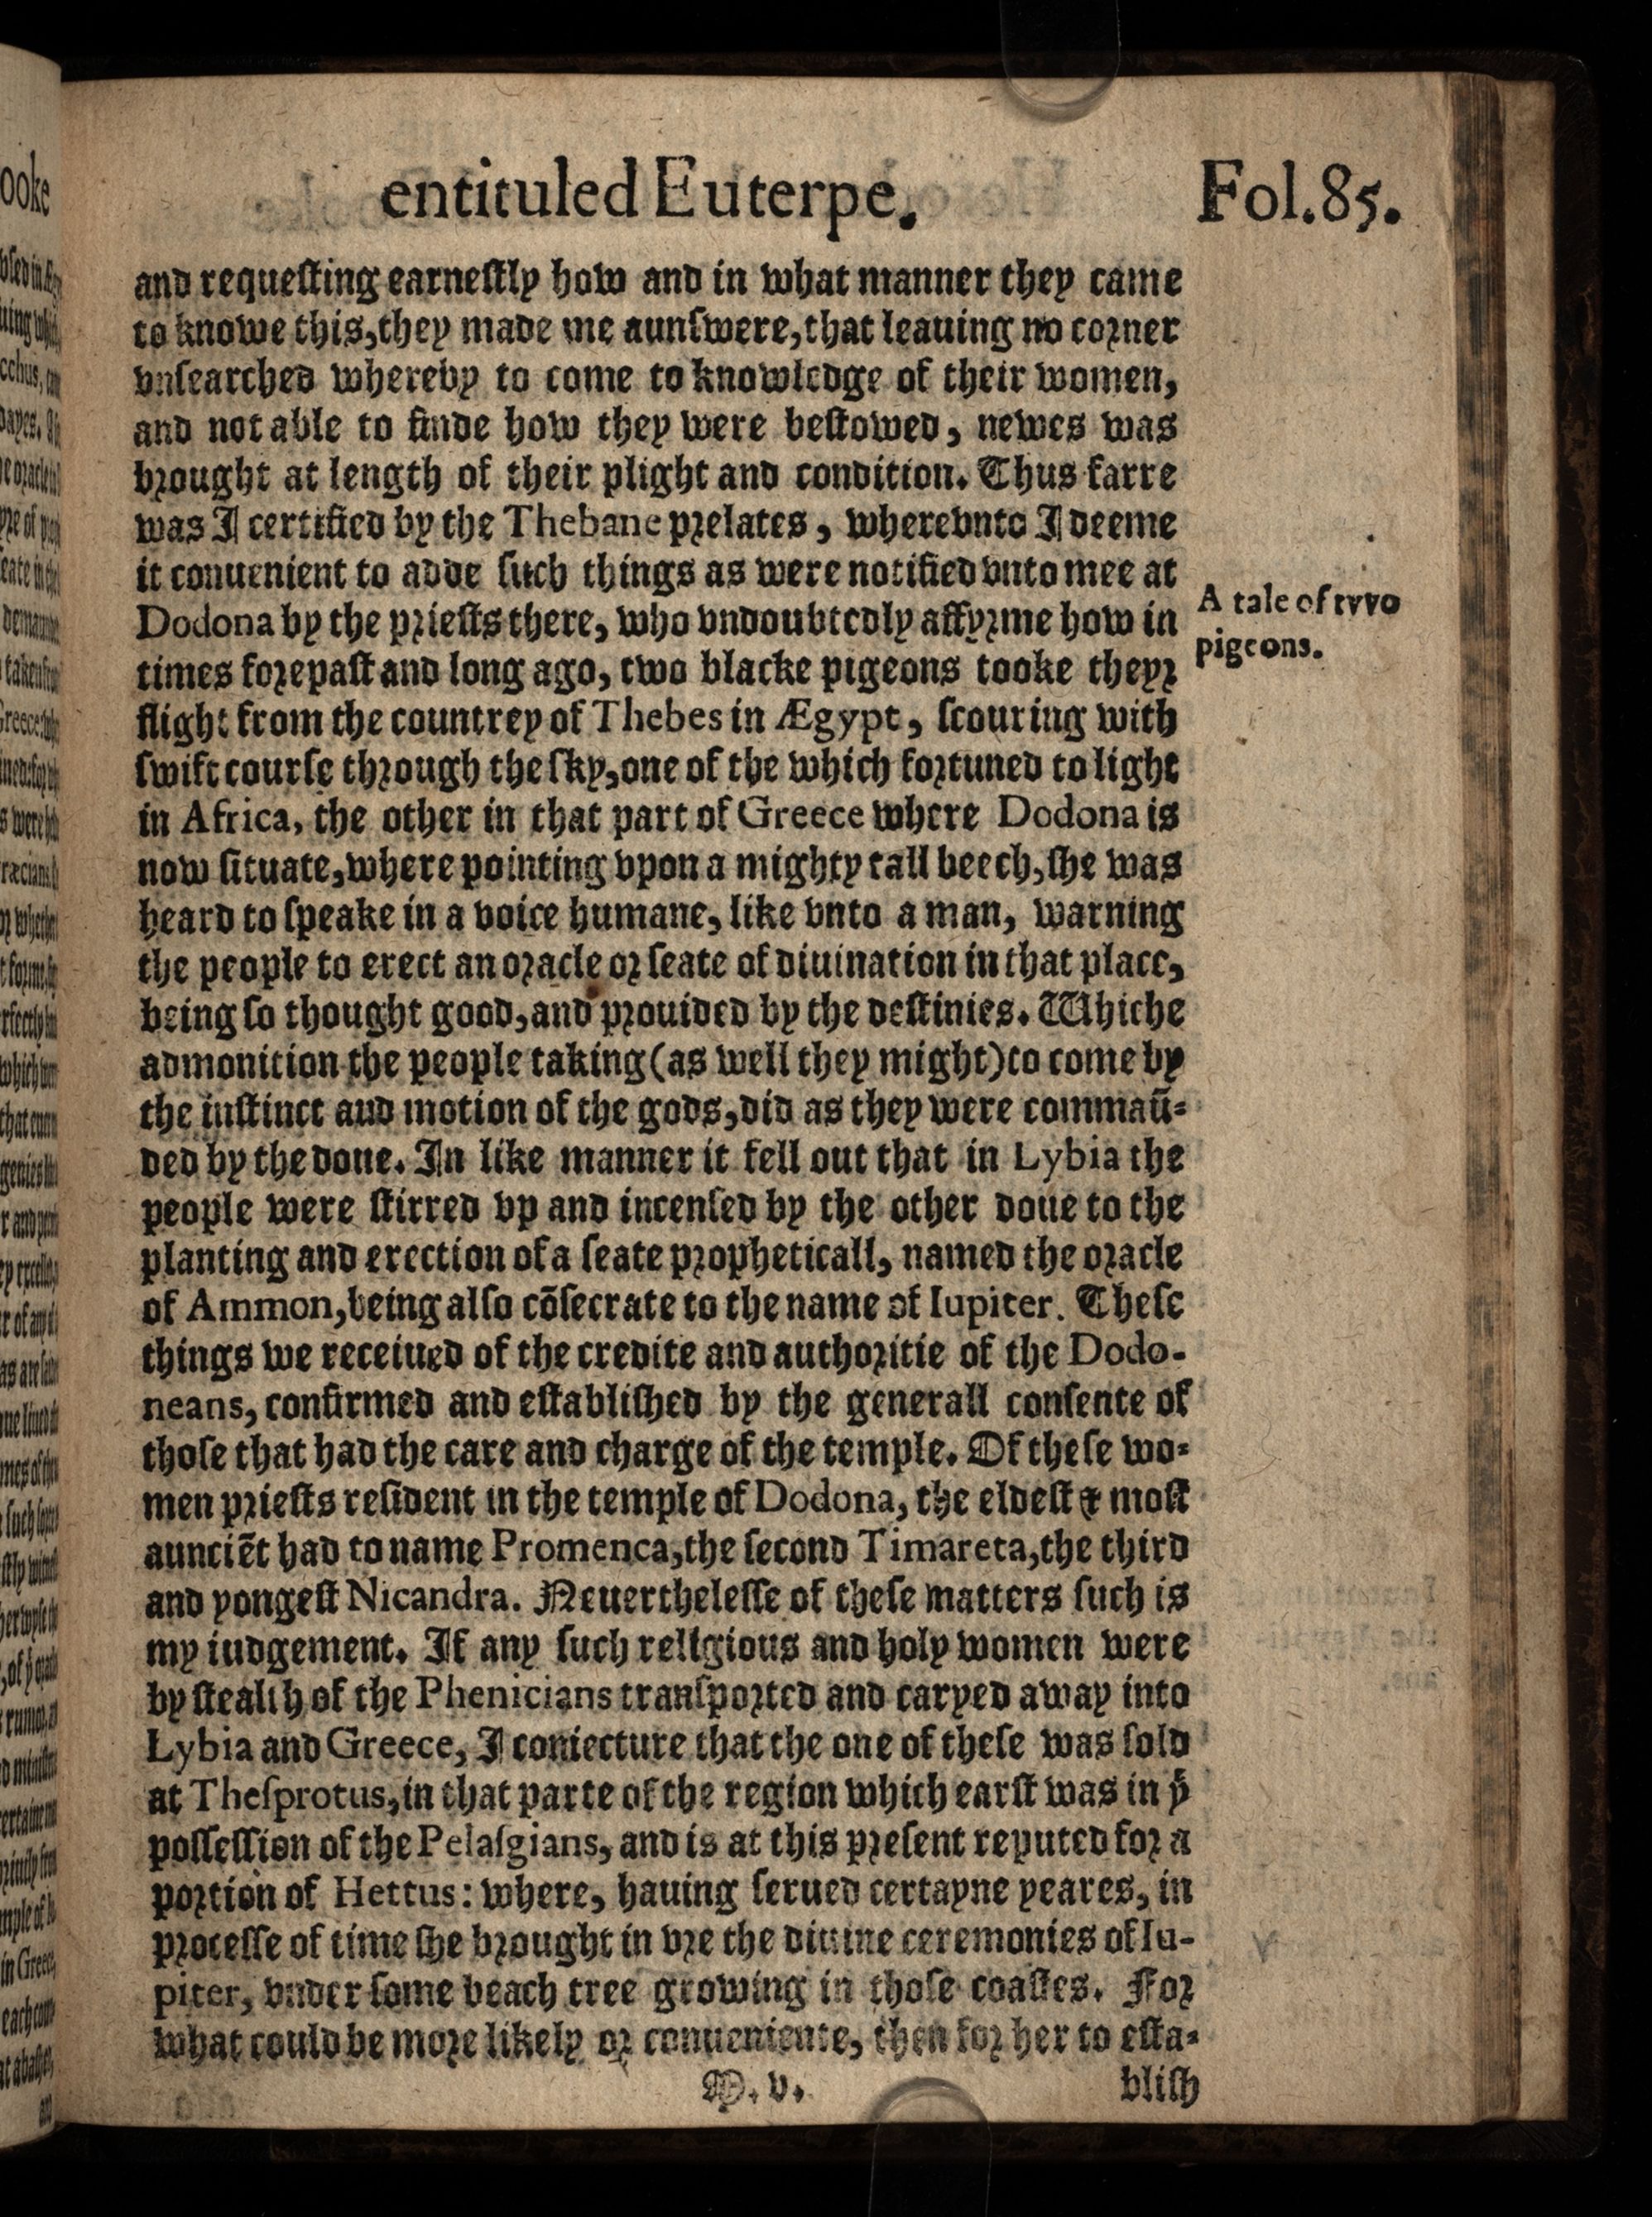 entituled Euterpe. Fol.85.
and requeſting earneſtly how and in what manner they came
to knowe this, they made me aunſwere, that leauing no corner
vnſearched whereby to come to knowledge of their women,
and not able to finde how they were beſtowed, newes was
brought at length of their plight and condition. Thus farre
was I certified by the Thebane prelates, wherevnto I deeme
it conuenient to adde ſuch things as were notified vnto mee at
Dodona by the prieſts there, who vndoubtedly affyrme how in
times forepaſt and long ago, two blacke pigeons tooke theyr
flight from the countrey of Thebes in Ægypt, ſcouring with
ſwift courſe through the ſky, one of the which fortuned to light
in Africa, the other in that part of Greece where Dodona is
now ſituate, where pointing vpon a mighty tall beech, ſhe was
heard to ſpeake in a voice humane, like vnto a man, warning
the people to erect an oracle or ſeate of diuination in that place,
being ſo thought good, and prouided by the deſtinies. Whiche
admonition the people taking (as well they might) to come by
the inſtinct aud motion of the gods, did as they were commaū-
ded by the doue. In like manner it fell out that in Lybia the
people were ſtirred vp and incenſed by the other doue to the
planting and erection of a ſeate propheticall, named the oracle
of Ammon, being alſo cōſecrate to the name of Iupiter. Theſe
things we receiued of the credite and authoritie of the Dodo-
neans, confirmed and eſtabliſhed by the generall conſente of
thoſe that had the care and charge of the temple. Of theſe wo-
men prieſts reſident in the temple of Dodona, the eldeſt & moſt
aunciēt had to name Promenca, the ſecond Timareta, the third
and yongeſt Nicandra. Neuertheleſſe of theſe matters ſuch is
my iudgement. If any ſuch religious and holy women were
by ſtealth of the Phenicians tranſported and caryed away into
Lybia and Greece, I coniecture that the one of theſe was ſold
at Theſprotus, in that parte of the region which earſt was in yͤ
poſſeſſion of the Pelaſgians, and is at this preſent reputed for a
portion of Hettus: where, hauing ſerued certayne yeares, in
proceſſe of time ſhe brought in vre the diuine ceremonies of Iu-
piter, vnder ſome beach tree growing in thoſe coaſtes. For
what could be more likely or conueniente, then for her to eſta-
M.v. bliſh
A tale of tvvo
pigeons.